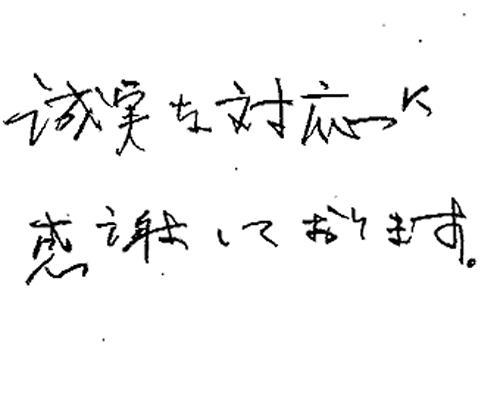 誠実な対応に
感謝しております。